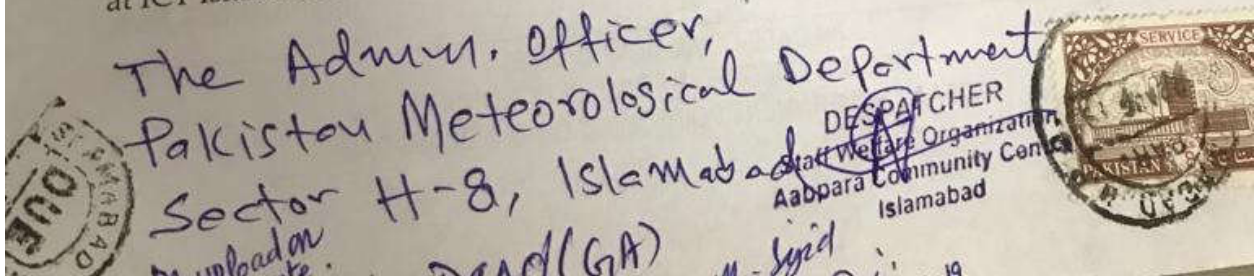 The Admn. Officer,
Pakistan Meteorological Department
Sector H-8, Islamabad
DESPATCHER
Staff Welfare Organization
Aabpara Community Centre
Islamabad
SERVICE
PAKISTAN
ISLAMABAD
DUE
upload on
(GA)
19